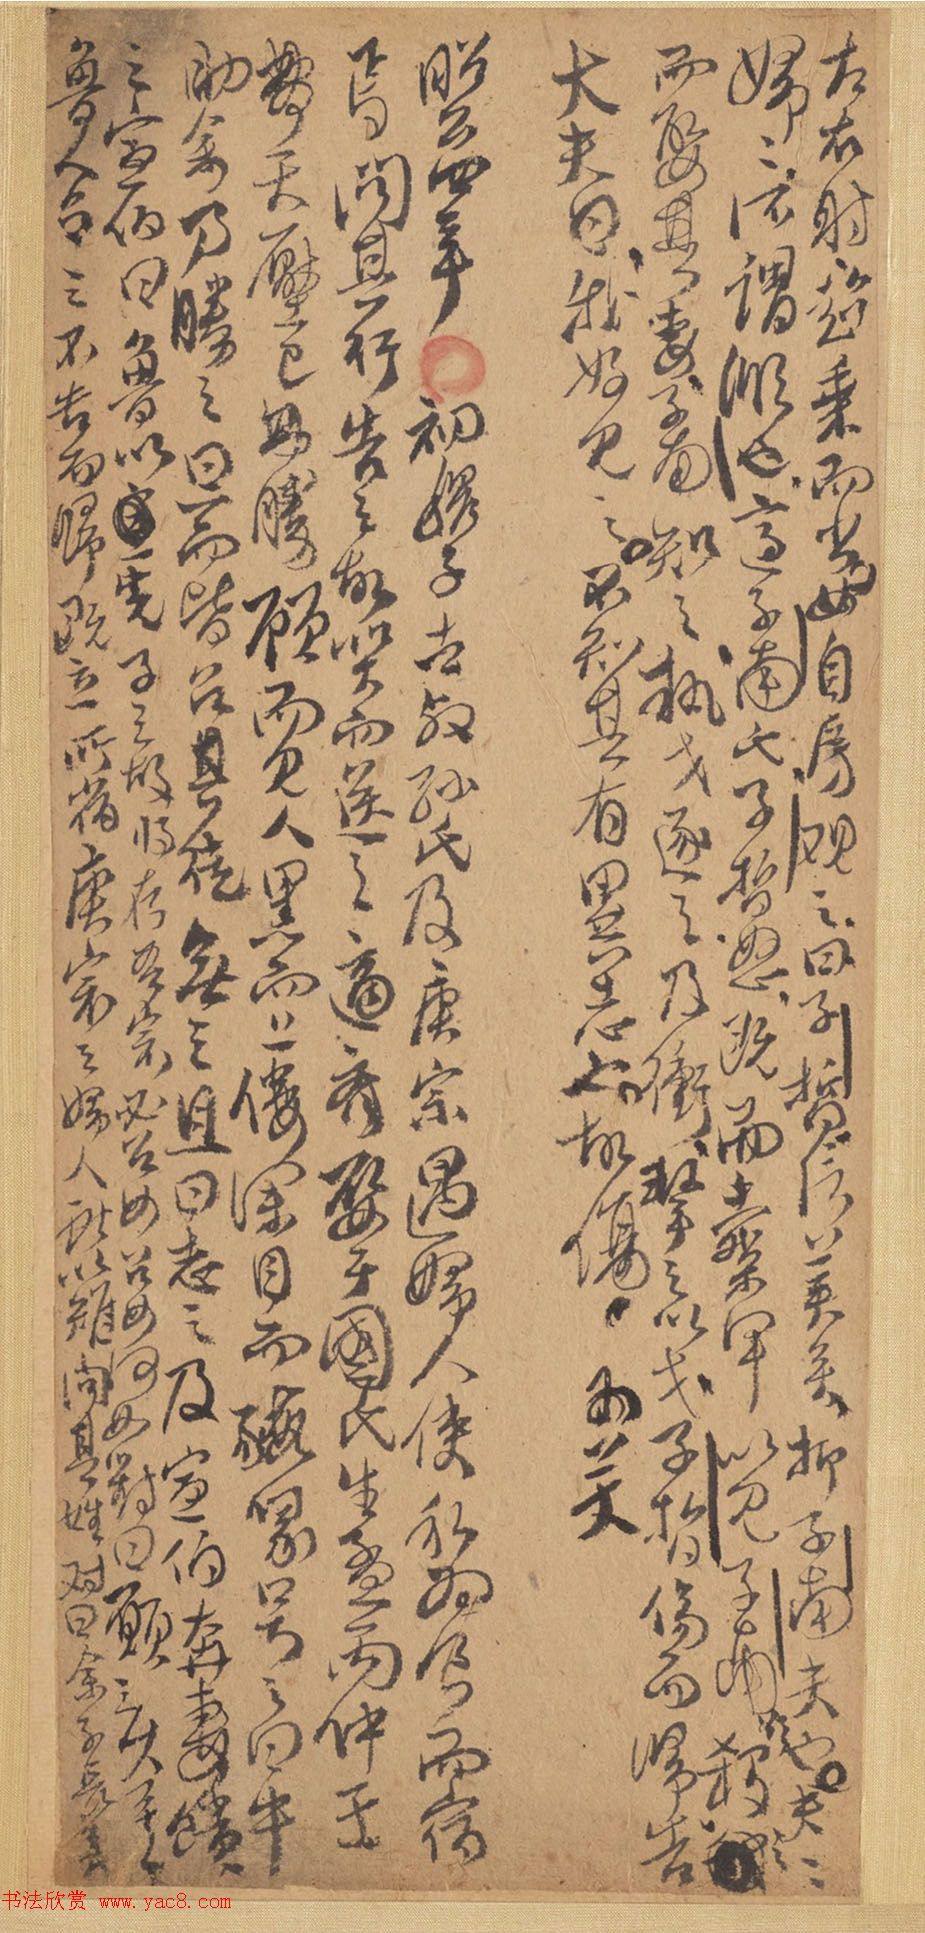 左右射超乘而出女自房觀之曰子皙信美矣抑子南夫也夫〻
婦〻所謂順也適子南氏子皙怒既而櫜甲以見子南欲殺之
而娶其妻子南知之執戈逐之及衝擊之以戈子皙傷而歸告
大夫曰我好見之不知其有異志也故傷
昭公四年 初穆子去叔孫氏及庚宗遇婦人使私為食而宿
焉問其行告之故哭而送之適齊娶于國氏生孟丙仲壬
夢天壓己弗勝顧而見人黑而上僂深目而豭喙号之曰牛
助余乃勝之旦而皆召其徒無之且曰志之及宣伯奔齊饋
之宣伯曰魯以先子之故將存吾宗必召女召女何如對曰願之久矣
魯人召之不告而歸既立所宿庚宗之婦人獻以雉問其姓对曰余子長矣
书法欣赏 www.yac8.com